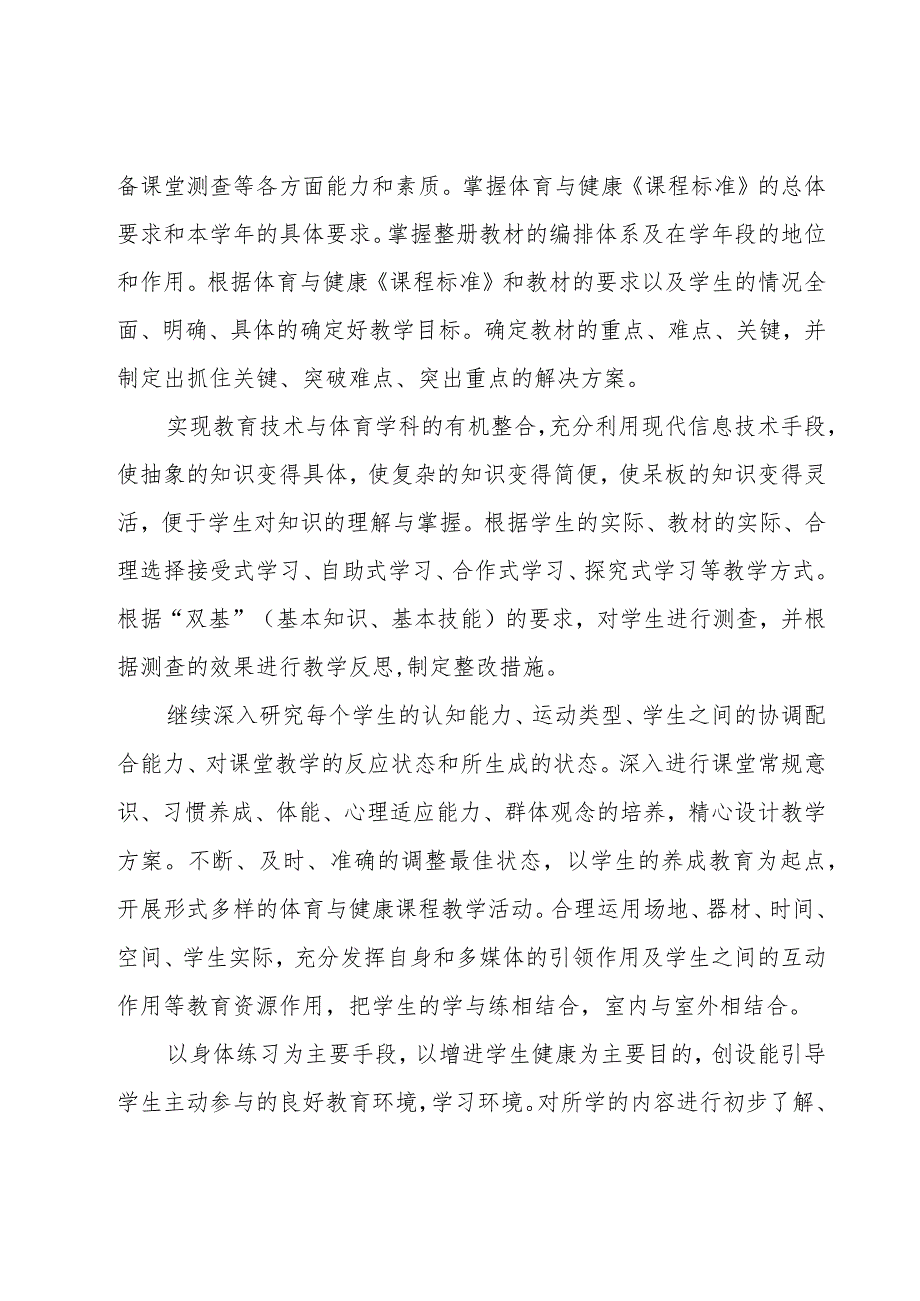 备课堂测查等各方面能力和素质。掌握体育与健康《课程标准》的总体
要求和本学年的具体要求。掌握整册教材的编排体系及在学年段的地位
和作用。根据体育与健康《课程标准》和教材的要求以及学生的情况全
面、明确、具体的确定好教学目标。确定教材的重点、难点、关键，并
制定出抓住关键、突破难点、突出重点的解决方案。
实现教育技术与体育学科的有机整合,充分利用现代信息技术手段，
使抽象的知识变得具体，使复杂的知识变得简便，使呆板的知识变得灵
活，便于学生对知识的理解与掌握。根据学生的实际、教材的实际、合
理选择接受式学习、自助式学习、合作式学习、探究式学习等教学方式。
根据“双基”（基本知识、基本技能）的要求，对学生进行测查，并根
据测查的效果进行教学反思,制定整改措施。
继续深入研究每个学生的认知能力、运动类型、学生之间的协调配
合能力、对课堂教学的反应状态和所生成的状态。深入进行课堂常规意
识、习惯养成、体能、心理适应能力、群体观念的培养，精心设计教学
方案。不断、及时、准确的调整最佳状态，以学生的养成教育为起点，
开展形式多样的体育与健康课程教学活动。合理运用场地、器材、时间、
空间、学生实际，充分发挥自身和多媒体的引领作用及学生之间的互动
作用等教育资源作用，把学生的学与练相结合，室内与室外相结合。
以身体练习为主要手段，以增进学生健康为主要目的，创设能引导
学生主动参与的良好教育环境，学习环境。对所学的内容进行初步了解、